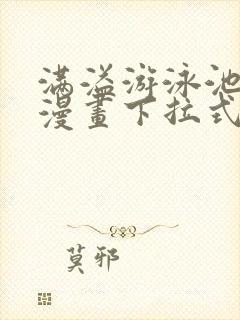 满溢游泳池
漫畫下拉式
莫邪